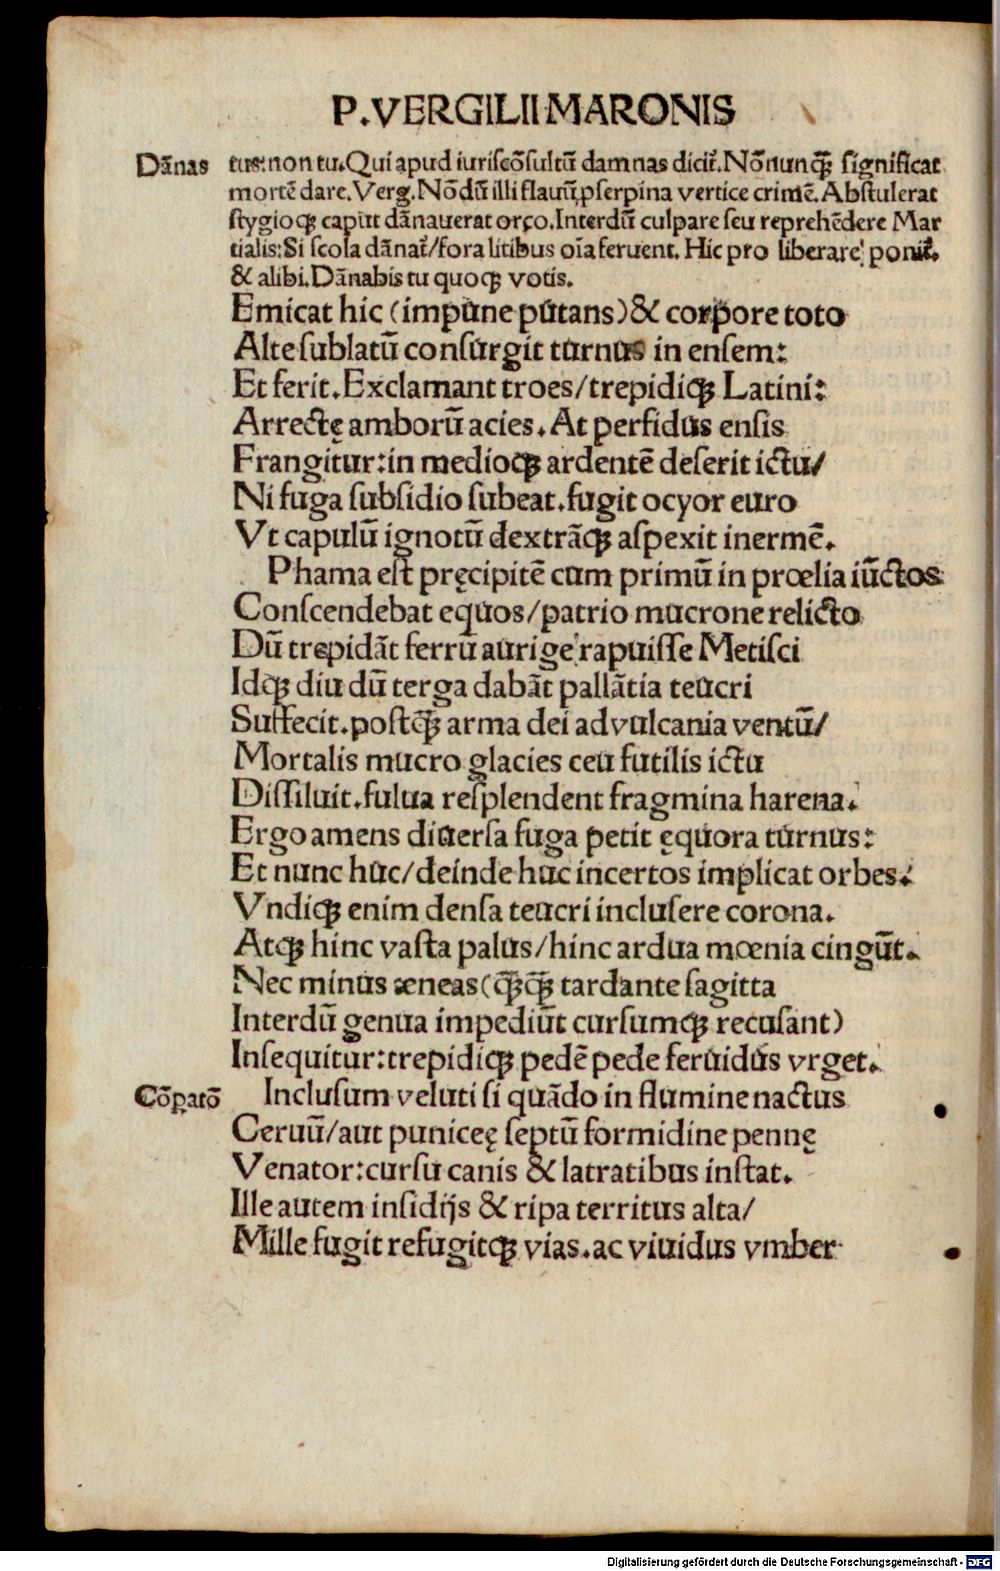 P.VERGILII MARONIS
Dānas tus:non tu.Qui apud iuriscōsultū damnas dicit̄.Nōnunꝗ̄ significat
mortē dare.Verg.Nōdū illi flauū ꝓserpina vertice crimē.Abstulerat
stygioqꝫ caput dānauerat orco.Interdū culpare seu reprehēdere Mar
tialis:Si scola dānat̄/fora litibus oīa feruent. Hic pro liberare ponit̄.
& alibi.Dānabis tu quoqꝫ votis.
Emicat hic (impune putans)& corpore toto
Alte sublatū consurgit turnus in ensem:
Et ferit.Exclamant troes/trepidiqꝫ Latini:
Arrectę amborū acies. At perfidus ensis
Frangitur:in medioqꝫ ardentē deserit ictu/
Ni fuga subsidio subeat.fugit ocyor euro
Vt capulū ignotū dextrāqꝫ aspexit inermē.
Phama est pręcipitē cum primū in prœlia iūctos
Conscendebat equos/patrio mucrone relicto
Dū trepidāt ferrū aurige rapuisse Metisci
Idqꝫ diu dū terga dabāt pallātia teucri
Suffecit.postꝗ̄ arma dei ad vulcania ventū/
Mortalis mucro glacies ceu futilis ictu
Dissiluit.fulua resplendent fragmina harena.
Ergo amens diuersa fuga petit ęquora turnus:
Et nunc huc/deinde huc incertos implicat orbes.
Vndiqꝫ enim densa teucri inclusere corona.
Atqꝫ hinc vasta palus/hinc ardua mœnia cingūt.
Nec minus æneas(ꝗ̄ꝗ̄ tardante sagitta
Interdū genua impediūt cursumqꝫ recusant)
Insequitur:trepidiqꝫ pedē pede feruidus vrget.
Cōꝑatō Inclusum veluti si quādo in flumine nactus
Ceruū/aut puniceę septū formidine pennę
Venator:cursu canis & latratibus instat.
Ille autem insidijs & ripa territus alta/
Mille fugit refugitqꝫ vias.ac viuidus vmber
Digitalisierung gefördert durch die Deutsche Forschungsgemeinschaft - DFG